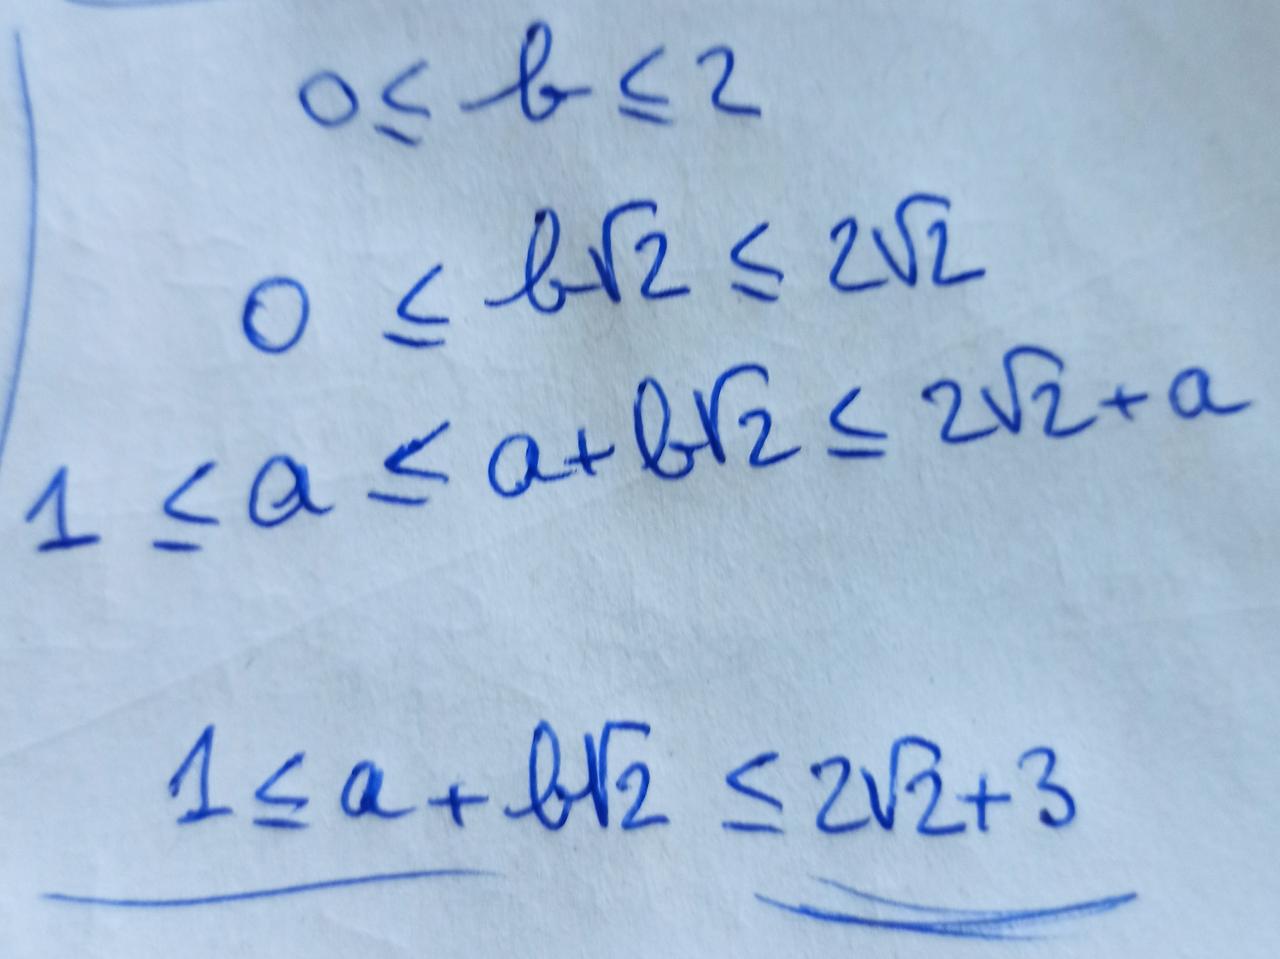 0 ≤ b ≤ 2
0 ≤ b√2 ≤ 2√2
1 ≤ a ≤ a+b√2 ≤ 2√2+a
1 ≤ a + b√2 ≤ 2√2+3